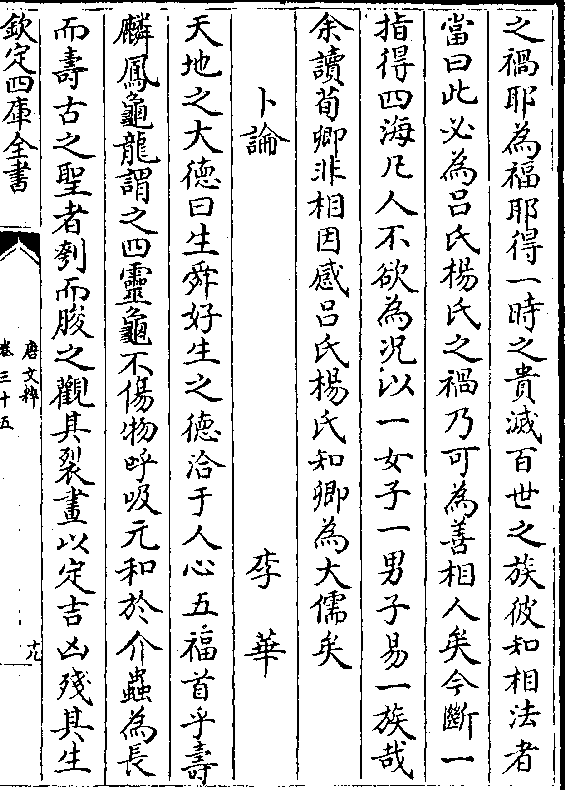 之禍耶為福耶得一時之貴滅百世之族彼知相法者
當曰此必為呂氏楊氏之禍乃可為善相人矣今斷一
指得四海凡人不欲為况以一女子一男子易一族哉
余讀荀卿非相因感呂氏楊氏知卿為大儒矣
卜論 李華
天地之大德曰生舜好生之德洽于人心五福首乎壽
麟鳳龜龍謂之四靈龜不傷物呼吸元和於介蟲為長
而壽古之聖者刳而脧之觀其裂畫以定吉凶殘其生
欽定四庫全書
唐文粹
卷三十五